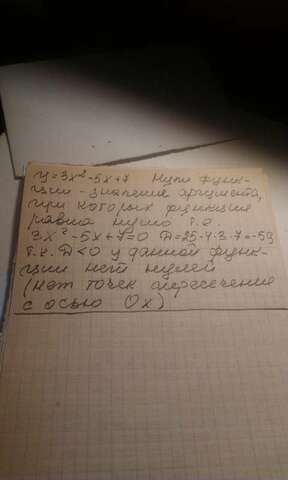 y=3x²-5x+7 Нули функ-
ции - значение аргумента,
при которых функция
равна нулю т.е.
3x²-5x+7=0 D=25-4·3·7=-59
т.к. D<0 у данной функ-
ции нет нулей
(нет точек пересечения
с осью Ox)